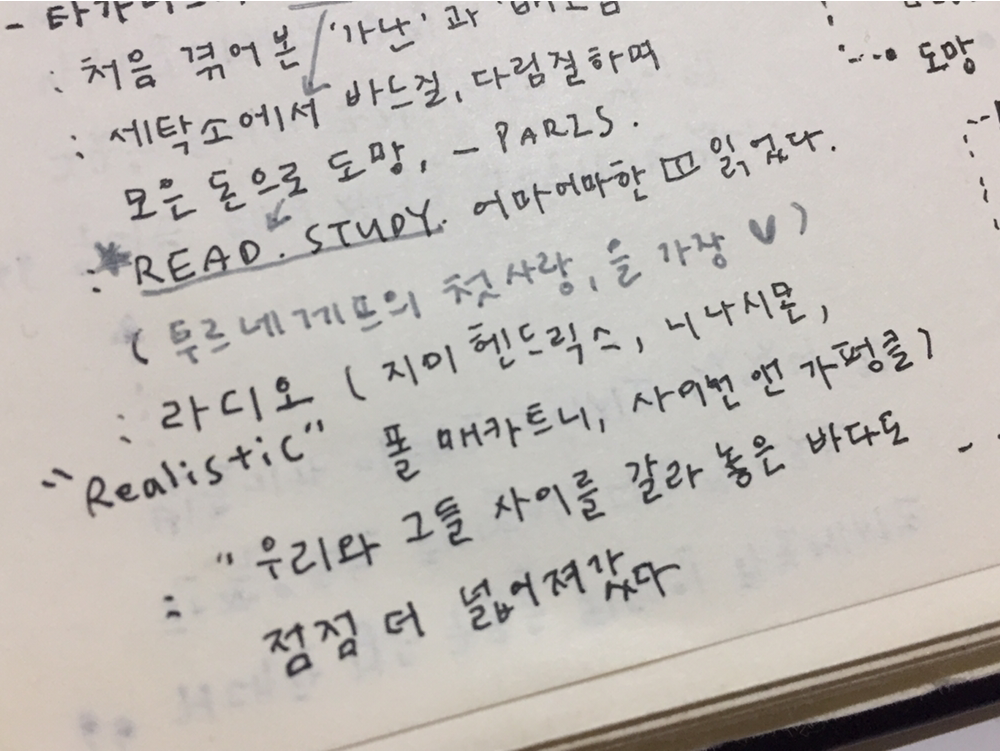 처음 겪어 본 '가난'과
: 세탁소에서 바느질, 다림질하며
모은 돈으로 도망, - PARIS.
: READ. STUDY. 어마어마한 읽었다.
(투르네게프의 첫사랑, 을 가장 ♥)
: 라디오 (지미 헨드릭스, 니나시몬,
"Realistic" 폴 매카트니, 사이먼 앤 가펑클)
: "우리와 그들 사이를 갈라 놓은 바다도
점점 더 넓어져갔다
도망